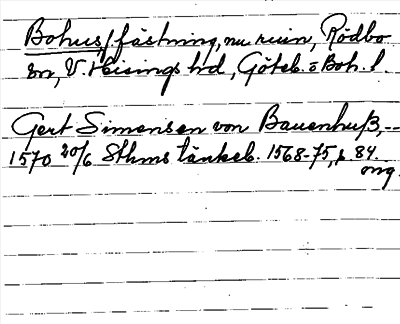 Bohus, fästning, nu ruin, Rödbo
sn, V. Hisings hd, Göteb. o Boh. l.
Gert Simensen von Bauenhuß, --
1570 20/6 Sthms tänkeb. 1568-75, s. 84.
orig.